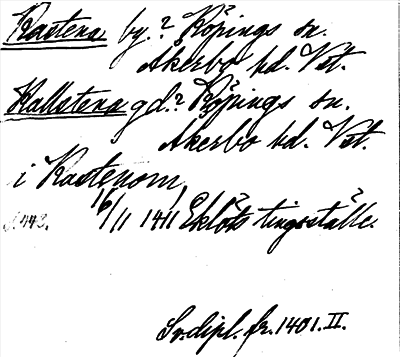 Kastena by.? Köpings sn.
Åkerbo hd. Vst.
Kallstena gd.? Köpings sn.
Åkerbo hd. Vst.
i Kastenom,
16/11 1411 Eklöts tingsställe.
s. 443.
Sv. dipl. fr. 1401. II.